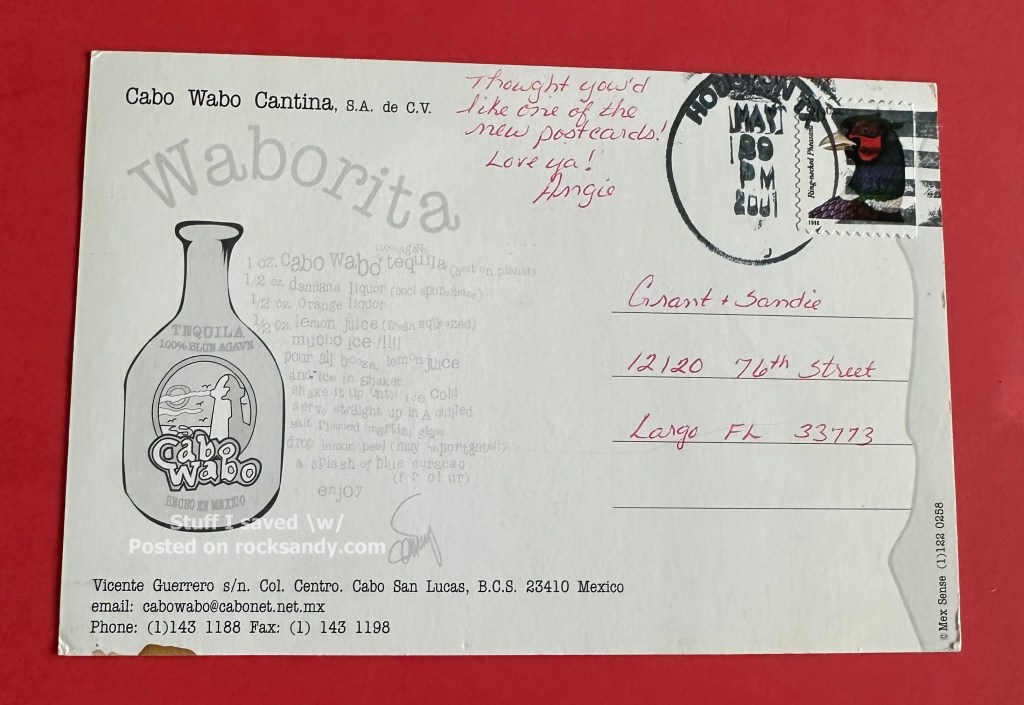 Cabo Wabo Cantina, S.A. de C.V.
Thought you'd
like one of the
new postcards!
Love ya!
Angie
HOUSTON TX
MAY
PM
2001
Ring-necked Pheasant
1998
Waborita
100% agave
1 oz. Cabo Wabo tequila (best on planet)
1/2 oz. damiana liquor (cool aphrodisiac)
1/2 oz. Orange liquor
1/2 oz. lemon juice (fresh squeezed)
mucho ice !!!!!
pour all booze, lemon juice
and ice in Shaker
shake it up until ice Cold
serve straight up in A chilled
salt rimmed martini glass
drop lemon peel (muy importante!!)
a splash of blue curacao
(for color)
enjoy
TEQUILA
100% BLUE AGAVE
Cabo
Wabo
HECHO EN MEXICO
Grant + Sandie
12120 76th Street
Largo FL 33773
Stuff I saved \w/
Posted on rocksandy.com
Vicente Guerrero s/n. Col. Centro. Cabo San Lucas, B.C.S. 23410 Mexico
email: cabowabo@cabonet.net.mx
Phone: (1)143 1188 Fax: (1) 143 1198
© Mex Sense (1)122 0258